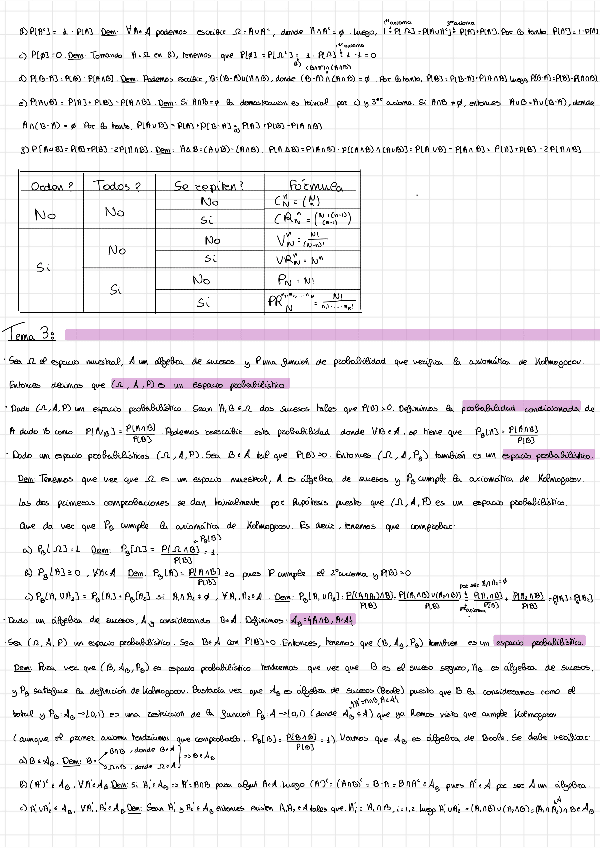 b) P[Aᶜ] = 1 - P[A] Dem: ∀A∈A podemos escribir Ω = A∪Aᶜ, donde A∩Aᶜ = ∅. Luego, 1 = P[Ω] = P[A∪Aᶜ] = P[A]+P[Aᶜ]. Por lo tanto P[Aᶜ] = 1-P[A]
c) P[∅] = 0. Dem: Tomando A = Ω en b), tenemos que P[∅] = P[Ωᶜ] = 1 - P[Ω] = 1 - 1 = 0
d) P[B-A] = P[B] - P[A∩B]. Dem: Podemos escribir, B = (B-A)∪(A∩B), donde (B-A)∩(A∩B) = ∅. Por lo tanto, P[B] = P[B-A]+P[A∩B] luego P[B-A] = P[B]-P[A∩B]
e) P[A∪B] = P[A] + P[B] - P[A∩B]. Dem: Si A∩B = ∅ la demostración es trivial por c) y 3er axioma. Si A∩B ≠ ∅, entonces A∪B = A∪(B-A), donde
A∩(B-A) = ∅ Por lo tanto, P[A∪B] = P[A] + P[B-A] = P[A] + P[B] - P[A∩B]
g) P[A∆B] = P[A]+P[B] - 2P[A∩B]. Dem: A∆B = (A∪B) - (A∩B). P[A∆B] = P[A∪B] - P[(A∩B)∩(A∪B)] = P[A∪B] - P[A∩B] = P[A] + P[B] - 2P[A∩B]
Orden? Todos? Se repiten? Fórmula
No No No
Si
Si No No
Si VR = Nⁿ
Si No P_N = N!
Si
Tema 3:
· Sea Ω el espacio muestral, A un álgebra de sucesos y P una función de probabilidad que verifica la axiomática de Kolmogorov.
Entonces decimos que (Ω, A, P) es un espacio probabilístico
· Dado (Ω, A, P) un espacio probabilístico. Sean A, B ∈ Ω dos sucesos tales que P[B] > 0. Definimos la probabilidad condicionada de
A dado B como P[A/B] = P[A∩B]/P[B]. Podemos reescribir esta probabilidad donde ∀B∈A, se tiene que P_B[A] = P[A∩B]/P[B]
· Dado un espacio probabilístico (Ω, A, P). Sea B∈A tal que P[B] > 0. Entonces (Ω, A, P_B) también es un espacio probabilístico.
Dem: Tenemos que ver que Ω es un espacio muestral, A es álgebra de sucesos y P_B cumple la axiomática de Kolmogorov.
Las dos primeras comprobaciones se dan trivialmente por hipótesis puesto que (Ω, A, P) es un espacio probabilístico.
Que da ver que P_B cumple la axiomática de Kolmogorov. Es decir, tenemos que comprobar:
a) P_B[Ω] = 1 Dem: P_B[Ω] = P[Ω∩B]/P[B] = 1.
b) P_B[A] ≥ 0, ∀A∈A Dem: P_B[A] = P[A∩B]/P[B] ≥ 0 pues P cumple el 2º axioma y P[B] > 0
c) P_B[A₁∪A₂] = P_B[A₁] + P_B[A₂] si A₁∩A₂ = ∅, ∀A₁, A₂∈A
· Dado un álgebra de sucesos, A y considerando B∈A. Definimos A_B = {A∩B, A∈A}
· Sea (Ω, A, P) un espacio probabilístico. Sea B∈A con P[B] > 0. Entonces, tenemos que (B, A_B, P_B) también es un espacio probabilístico.
Dem: Para ver que (B, A_B, P_B) es espacio probabilístico tendremos que ver que B es el suceso seguro, A_B es álgebra de sucesos,
y P_B satisface la definición de Kolmogorov. Bastaría ver que A_B es álgebra de sucesos (Boole) puesto que B la consideramos como el
total y P_B: A_B → [0,1] es una restricción de la función P_B: A → [0,1] (donde A_B ⊂ A) que ya hemos visto que cumple Kolmogorov
(aunque el primer axioma tendríamos que comprobarlo. P_B[B] = P[B∩B]/P[B] = 1). Veamos que A_B es álgebra de Boole. Se debe verificar:
a) B∈A_B. Dem: B = B∩B, donde B∈A
Ω∩B, donde Ω∈A ⇒ B∈A_B
b) (A')ᶜ ∈ A_B, ∀A'∈A_B Dem: Si A'∈A_B ⇒ A' = A∩B para algún A∈A luego (A')ᶜ = (A∩B)ᶜ = B-A = B∩Aᶜ ∈ A_B pues Aᶜ∈A por ser A un álgebra
c) A₁'∪A₂' ∈ A_B, ∀A₁', A₂' ∈ A_B Dem: Sean A₁' y A₂' ∈ A_B entonces existen A₁, A₂∈A tales que A_i' = A_i∩B, i=1,2. luego A₁'∪A₂' = (A₁∩B)∪(A₂∩B) = (A₁∪A₂)∩B ∈ A_B